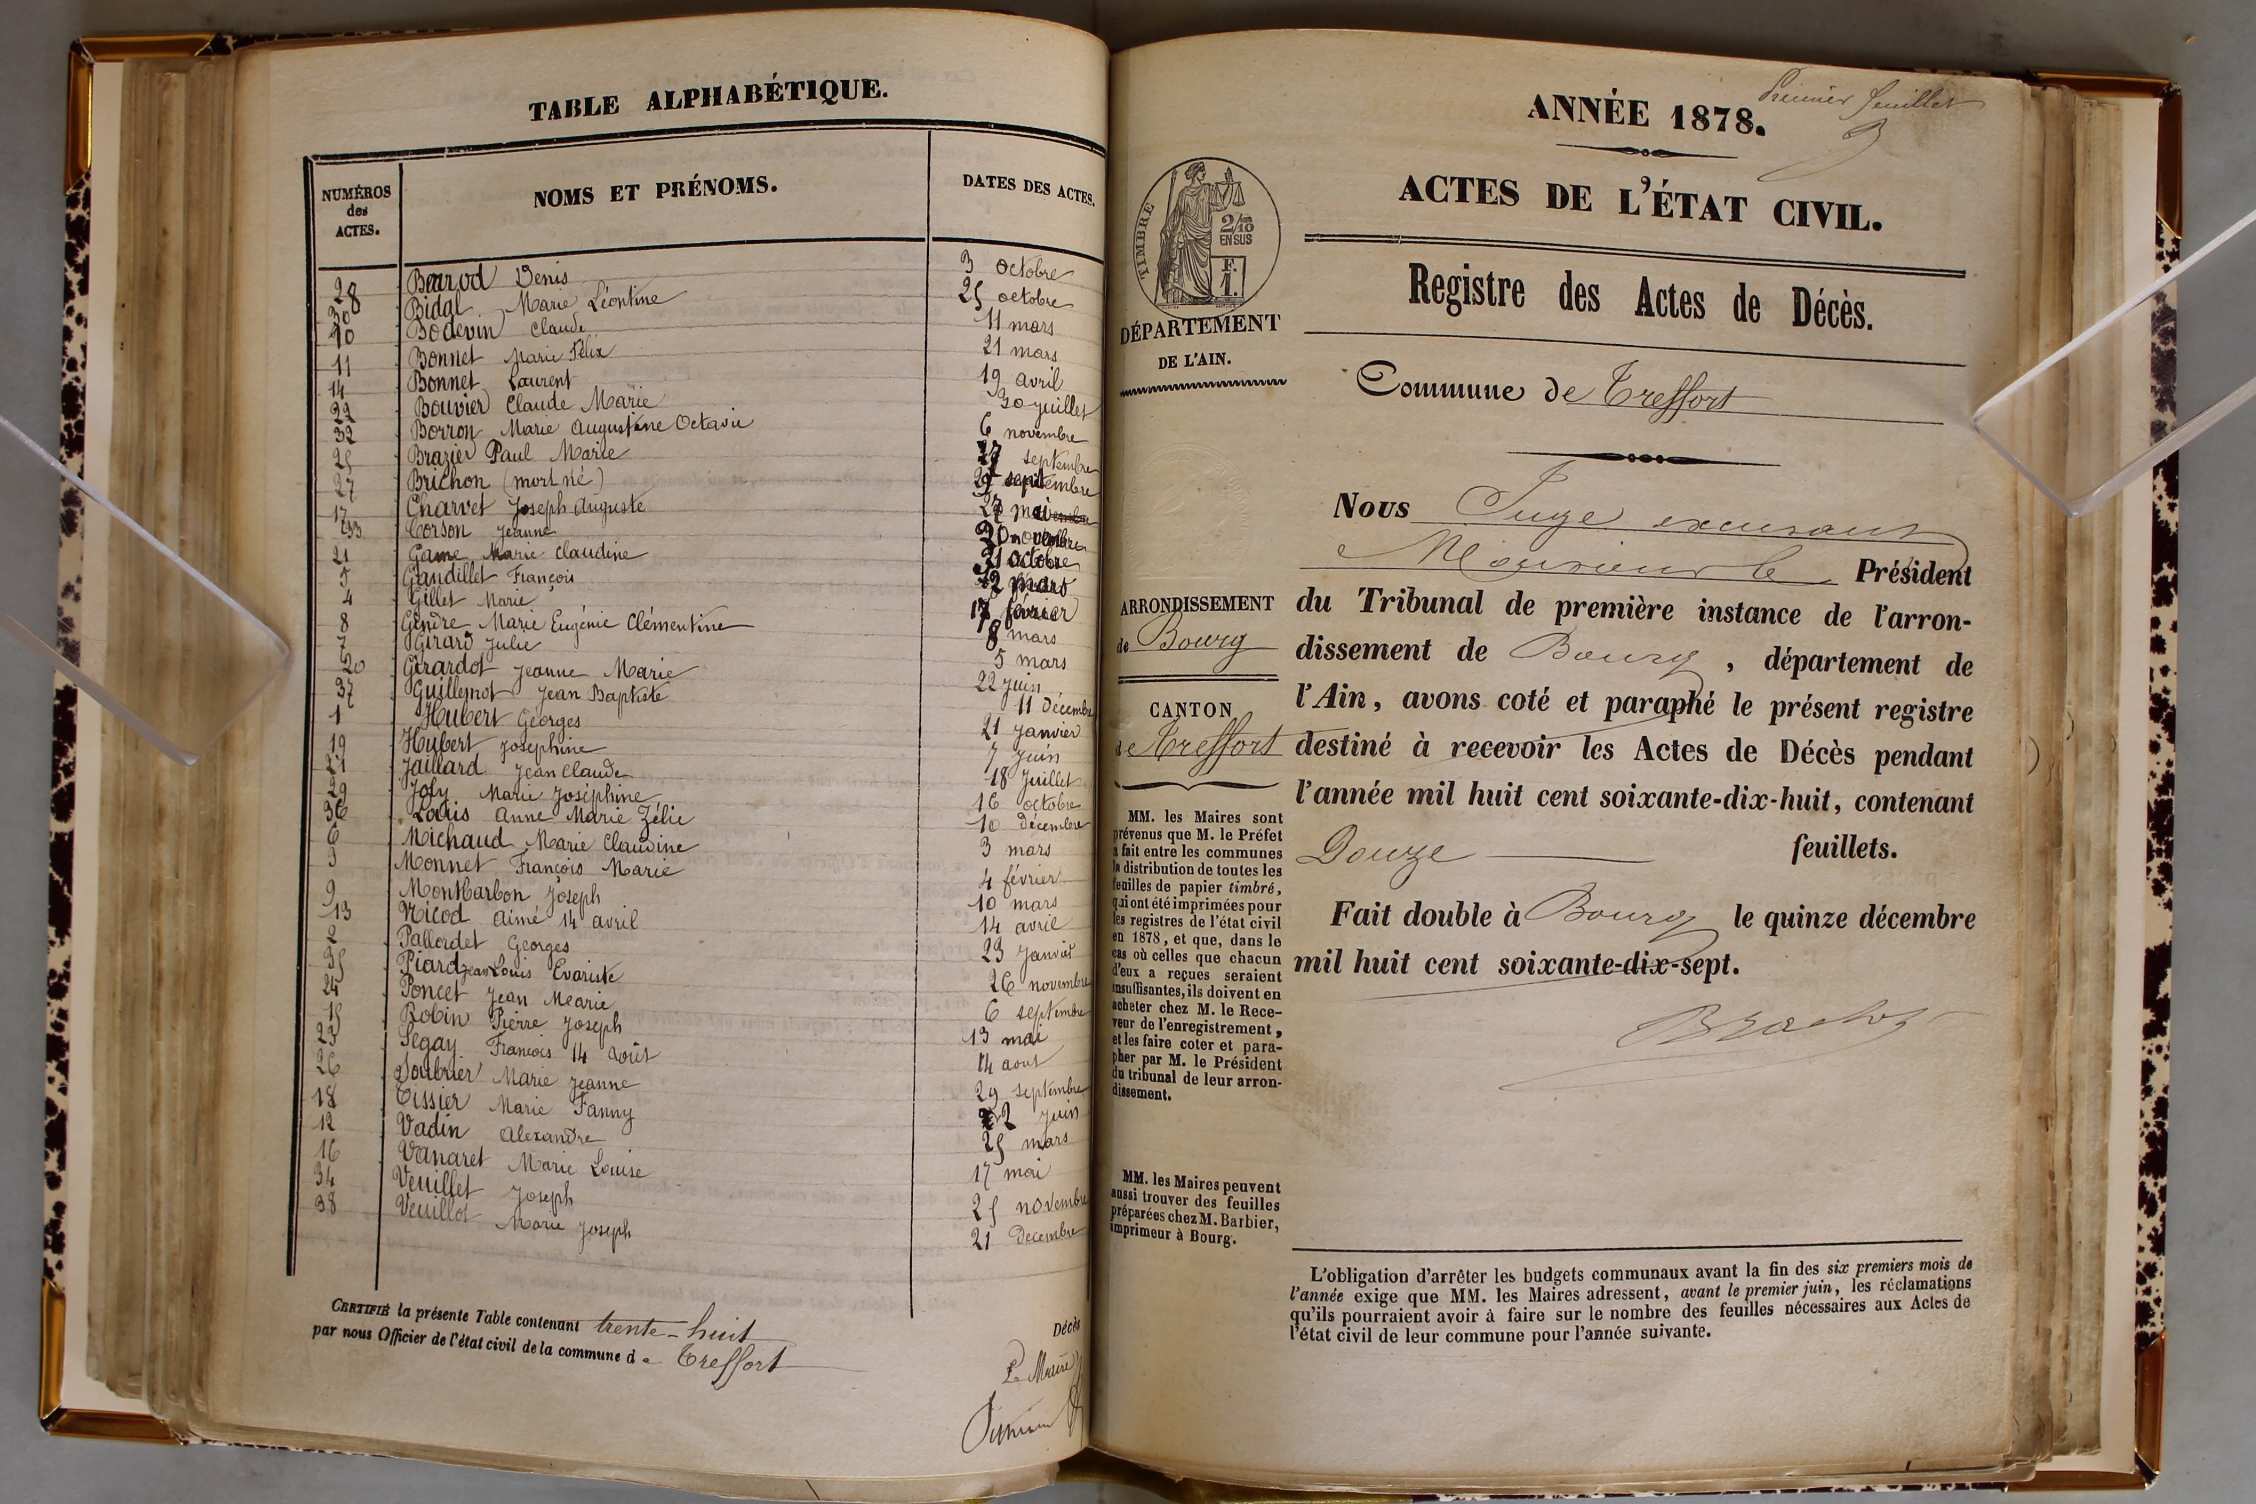 TABLE ALPHABÉTIQUE.
NUMÉROS des ACTES.
NOMS ET PRÉNOMS.
DATES DES ACTES.
28 Bearod Denis 3 octobre
30 Bidal Marie Léontine 25 octobre
10 Bodevin Claude 11 mars
11 Bonnet Marie Félix 21 mars
14 Bonnet Laurent 19 avril
22 Bouvier Claude Marie 30 juillet
32 Borron Marie Augustine Octavie 6 novembre
25 Brazier Paul Marie septembre
27 Brichon (mort né) septembre
17 Charvet Joseph Auguste mai
33 Corson Jeanne novembre
21 Game Marie Claudine 31 octobre
5 Gandillet François 2 mars
4 Gillet Marie 17 février
8 Gendre Marie Eugénie Clémentine 8 mars
7 Girard Julie 5 mars
20 Girardot Jeanne Marie 22 juin
37 Guillemot Jean Baptiste 11 Décembre
1 Hubert Georges 21 janvier
19 Hubert Josephine 7 juin
21 Jaillard Jean Claude 18 Juillet
29 Joly Marie Joséphine 16 octobre
36 Louis Anne Marie Zélie 10 Décembre
6 Michaud Marie Claudine 3 mars
3 Monnet François Marie 4 février
9 Montbarbon Joseph 10 mars
13 Nicod Aimé 14 avril 14 avril
2 Pallordet Georges 23 janvier
35 Piard Jean Louis Evariste 26 novembre
24 Poncet Jean Marie 6 septembre
15 Robin Pierre Joseph 13 mai
23 Segay François 14 août 14 aout
26 Soubrier Marie Jeanne 29 septembre
18 Tissier Marie Fanny 2 juin
12 Vadin Alexandre 25 mars
16 Vanaret Marie Louise 17 mai
34 Veuillet Joseph 25 novembre
38 Veuillot Marie Joseph 21 Decembre
CERTIFIÉ la présente Table contenant trente-huit Décès
par nous Officier de l'état civil de la commune d e Treffort
Le Maire
Premier feuillet
ANNÉE 1878.
ACTES DE L'ÉTAT CIVIL.
TIMBRE
2/10
EN SUS
F.
1.
Registre des Actes de Décès.
DÉPARTEMENT
DE L'AIN.
Commune de Treffort
Nous Juge excusant
Monsieur le Président
du Tribunal de première instance de l'arron-
dissement de Bourg, département de
l'Ain, avons coté et paraphé le présent registre
destiné à recevoir les Actes de Décès pendant
l'année mil huit cent soixante-dix-huit, contenant
Douze feuillets.
Fait double à Bourg le quinze décembre
mil huit cent soixante-dix-sept.
ARRONDISSEMENT
de Bourg
CANTON
de Treffort
MM. les Maires sont
prévenus que M. le Préfet
a fait entre les communes
la distribution de toutes les
feuilles de papier timbré,
qui ont été imprimées pour
les registres de l'état civil
en 1878, et que, dans le
cas où celles que chacun
d'eux a reçues seraient
insuffisantes, ils doivent en
acheter chez M. le Rece-
veur de l'enregistrement,
et les faire coter et para-
pher par M. le Président
du tribunal de leur arron-
dissement.
MM. les Maires peuvent
aussi trouver des feuilles
préparées chez M. Barbier,
imprimeur à Bourg.
L'obligation d'arrêter les budgets communaux avant la fin des six premiers mois de
l'année exige que MM. les Maires adressent, avant le premier juin, les réclamations
qu'ils pourraient avoir à faire sur le nombre des feuilles nécessaires aux Actes de
l'état civil de leur commune pour l'année suivante.